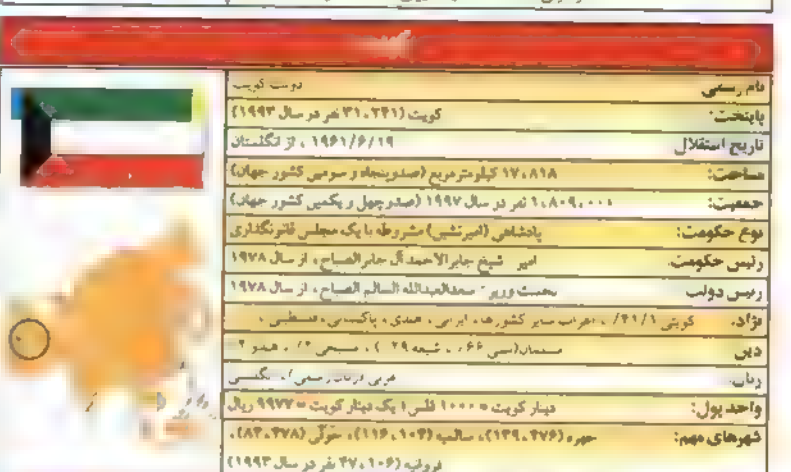 نام رسمی دولت کویت
پایتخت: کویت (۳۱،۲۴۱ نفر در سال ۱۹۹۳)
تاریخ استقلال ۱۹۶۱/۶/۱۹ ، از انگلستان
مساحت: ۱۷،۸۱۸ کیلومترمربع (صدوپنجاه و سومین کشور جهان)
جمعیت: ۱،۸۰۹،۰۰۰ نفر در سال ۱۹۹۷ (صدوچهل و یکمین کشور جهان)
نوع حکومت: پادشاهی (امیرنشین) مشروطه با یک مجلس قانونگذاری
رئیس حکومت. امیر شیخ جابرالاحمد آل جابرالصباح ، از سال ۱۹۷۸
رئیس دولت نخست وزیر سعدالعبدالله السالم الصباح ، از سال ۱۹۷۸
نژاد: کویتی ۴۱/۱٪ ، اعراب سایر کشورها ، ایرانی ، هندی ، پاکستانی ، فلسطینی ،
دین مسلمان (سنی ۶۶٪ ، شیعه ۲۹٪) ، مسیحی ۲٪ ، هندو ۲
زبان. عربی (زبان رسمی) ، انگلیسی
واحد پول: دینار کویت = ۱۰۰۰ فلس؛ یک دینار کویت = ۹۹۷۷ ریال
شهرهای مهم: جهره (۱۳۹،۴۷۶)، سالمیه (۱۱۶،۱۰۴)، حولّی (۸۴،۴۷۸)،
فروانیه (۴۷،۱۰۶ نفر در سال ۱۹۹۳)